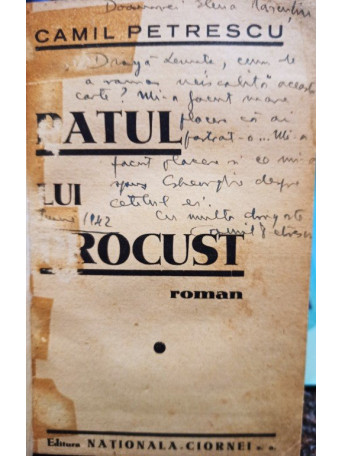 Doamnei Elena
CAMIL PETRESCU
" Dragă cum de
a rămas neiscălită această
carte? Mi-a făcut mare
PATUL
plăcere că ai
păstrat-o... Mi-a
făcut plăcere și ce mi-a
spus Gheorghe despre
LUI
cititul ei.
Cu multă dragoste
1942
Camil Petrescu
PROCUST
roman
Editura NAȚIONALA-CIORNEI S. A.